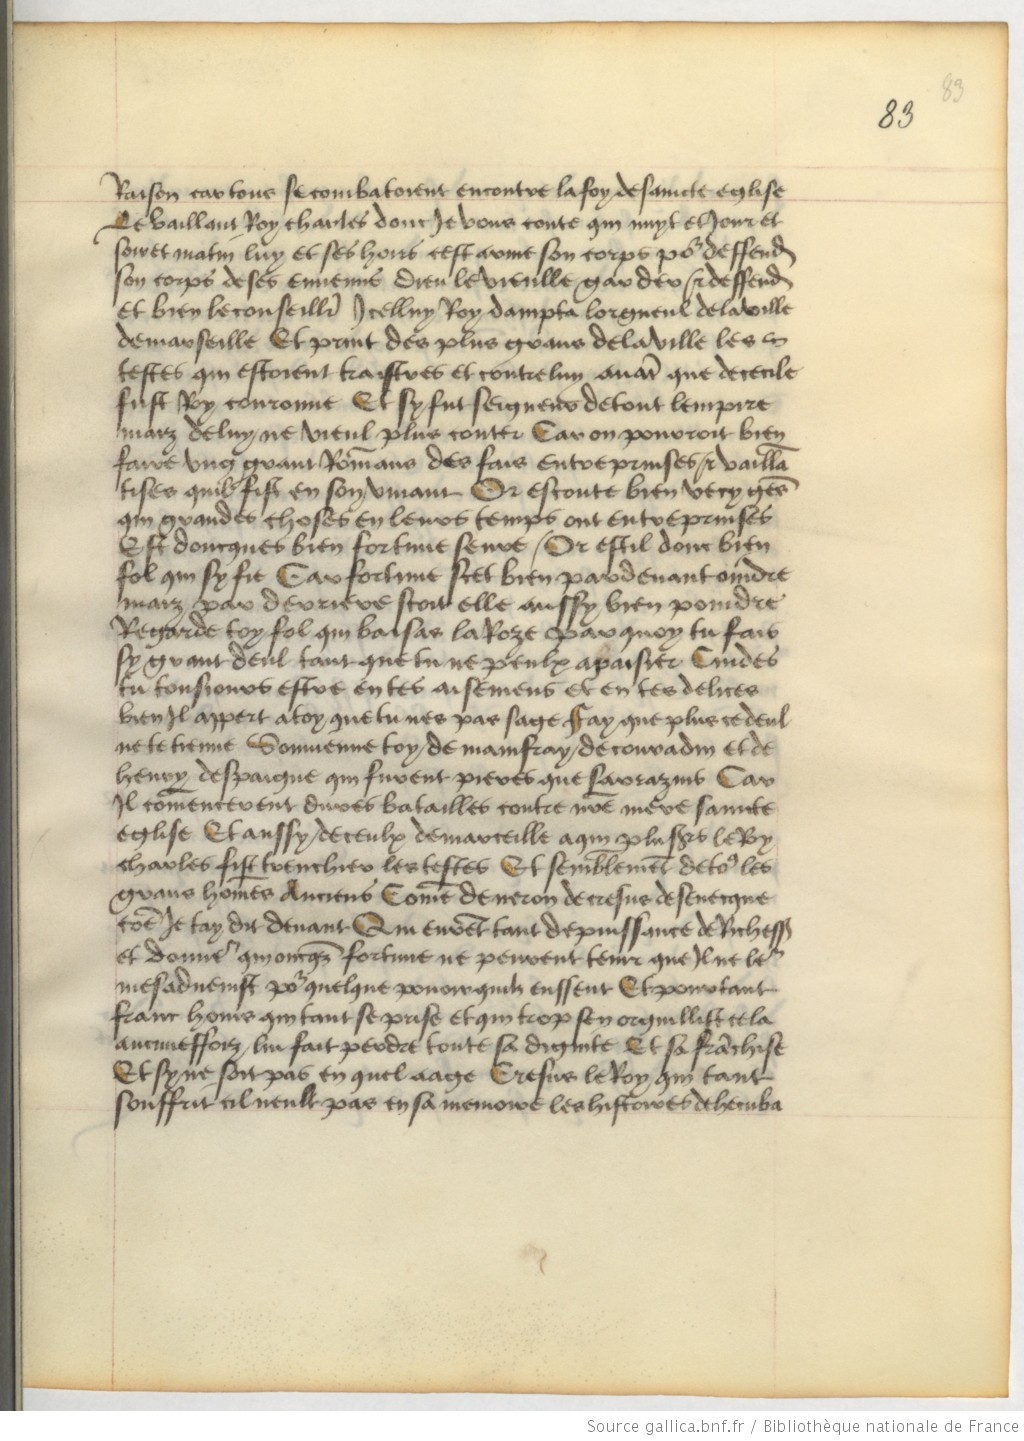 83
83
Raison car tous se combatoient encontre la foy de saincte eglise
Le vaillant Roy charles dont Je vous conte qui nuyt et Jour et
soir et matin luy et ses hoirs cest arme son corps po&#x27; deffend̄
son corps de ses ennemis Dieu le vieulle garder et deffend̄
et bien le conseillr̄ Icelluy Roy dampta lorgueul de la ville
de marseille Et print des plus grans de la ville les
testes qui estoient traistres et contre luy auāt que de cecile
fust Roy couronne Et sy fut seigneur de tout lempire
maiz de luy ne vieul plus conter Car on pourroit bien
faire vng grant Rōmans des fais entreprinses et vaillā
tises quil fist en son viuant Or escoute bien vecy gēs
qui grandes choses en leurs temps ont entreprinses
Est doncques bien fortune seure Or est il donc bien
fol qui sy fie Car fortune scet bien par deuant oindre
maiz par derriere scait elle aussy bien poindre
Regarde toy fol qui baisas la Roze par quoy tu fais
sy grant deul tant que tu ne peulx apaisier Cuides
tu tousiours estre en tes aisemens et en tes delices
bien Il appert a toy que tu nes pas sage Fay que plus ce deul
ne te tienne Souuienne toy de mainfray de conradin et de
henry despaigne qui furent pieres que sarrazins Car
Il cōmencerent dures batailles contre nr̄e mere saincte
eglise Et aussy de ceulx de marceille a qui plusrs le Roy
charles fist trenchier les testes Et semblemēt de to9 les
grans hōmes Anciens Cōme de neron de cresus de senecque
cōe Je tay dit deuant Qui eurēt tant de puissance de Richess
et donner qui oncqz fortune ne peurent tenir que Il ne ler
mesaduenist po&#x27; quelque pouoir quilz eussent Et pourtant
franc homs qui tant se prise et qui trop sen orguillist cela
aucuneffoiz lui fait perdre toute sa dignite Et sa frāchise
Et sy ne soit pas en quel aage Cresus le Roy qui tant
souffrit cil neult pas en sa memoire les histoires de hecuba
Source gallica.bnf.fr / Bibliothèque nationale de France